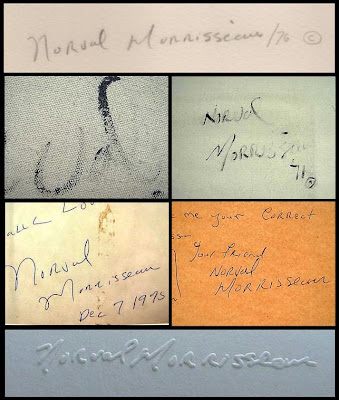 Norval Morrisseau/76 ©
ual
Norval
Morrisseau
71 ©
Norval
Morrisseau
Dec 7 1975
me your Correct
Your Friend
Norval
Morrisseau
Norval Morrisseau